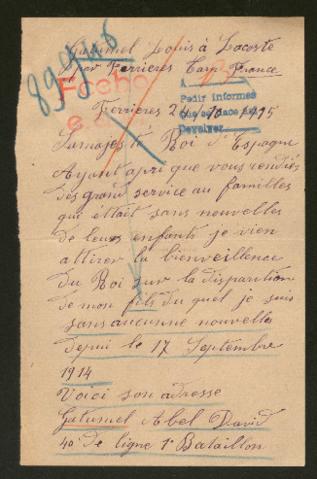 Gatumel Louis à Lacoste
par Ferrieres Tarn France
89946
Fecho
A
Pedir informes
Devolver
Ferrieres 24/10 1915
Sa majesté Roi d'Espagne
Ayant apri que vous rendiés
des grand service au familles
qui éttait sans nouvelles
de leurs enfants je vien
attirer la bienveillence
du Roi sur la disparition
de mon fils du quel je suis
sans aucunne nouvelles
depui le 17 Septembre
1914
Voici son adresse
Gatumel Abel David
40e de ligne 1er Bataillon